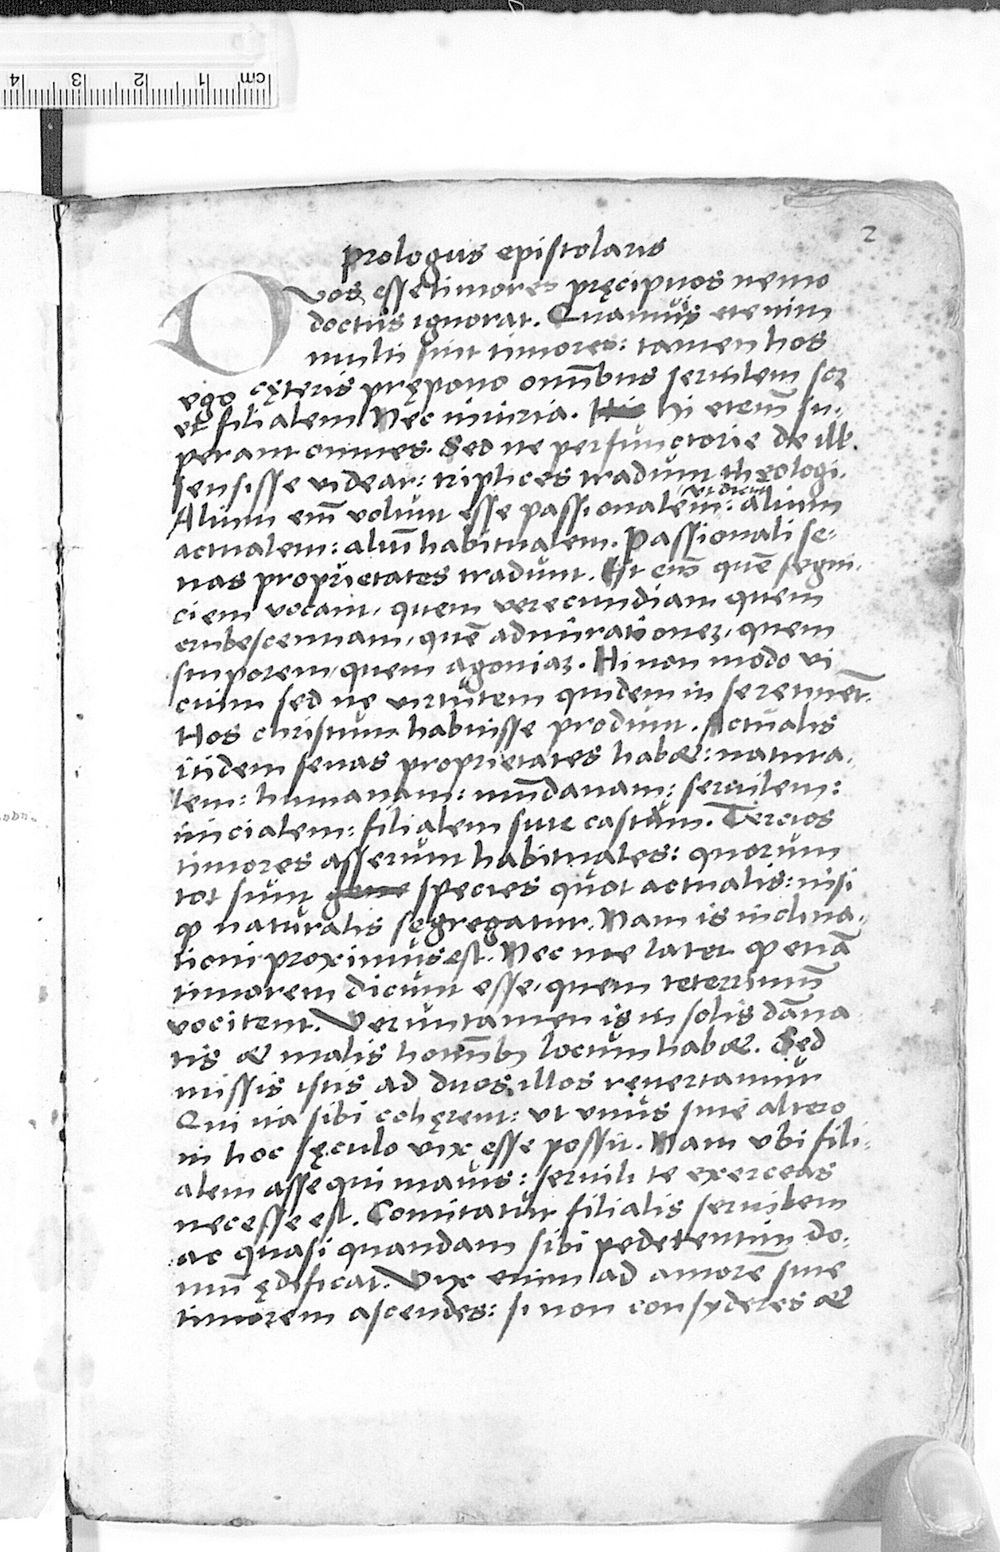 2
prologus epistolaris
Duos esse timores pręcipuos nemo
doctus ignorat. Quamuis etenim
multi sint timores: tamen hos
ego cęteris prępono omnibus seruilem scz
et filialem Nec iniuria. hi etem̄ su-
perant omnes. Sed ne perfunctorie de ill.
sensisse videar: triplices tradunt theologi.
vt dictu
Alium em̄ volunt esse passionalem: alium
actualem: aliū habitualem. Passionali se-
nas proprietates tradunt. Est em̄ quē segni-
ciem vocant, quem verecundiam quem
erubescentiam, quē admirationez, quem
stuporem, quem agoniaz. Hi non modo vi
cium sed nę virtutem quidem in se retinēt.
Hos christum habuisse produnt. Actualis
itidem senas proprietates habet: natura-
lem: humanam: mūdanam: seruilem:
inicialem: filialem siue castum. Tercios
timores asserunt habituales: quorum
tot sunt gene species quot actualis: nisi
ꝙ naturalis segregatur. Nam is inclina-
tioni proximus est. Nec me latet ꝙ etiā
timorem dicunt esse, quem teterrimū
vocitent. Veruntamen is in solis dāna
tis et malis hominibꝫ locum habet. Sed
missis istis ad duos illos reuertamur
Qui ita sibi cohęrent: vt vnus sine altero
in hoc sęculo vix esse possit. Nam vbi fili-
alem assequi mauis: seruili te exerceas
necesse est. Comitatur filialis seruilem
ac quasi quandam sibi pedetentim do-
mū ędificat. Vix enim ad amorē sine
timorem ascendes: si non consyderes et